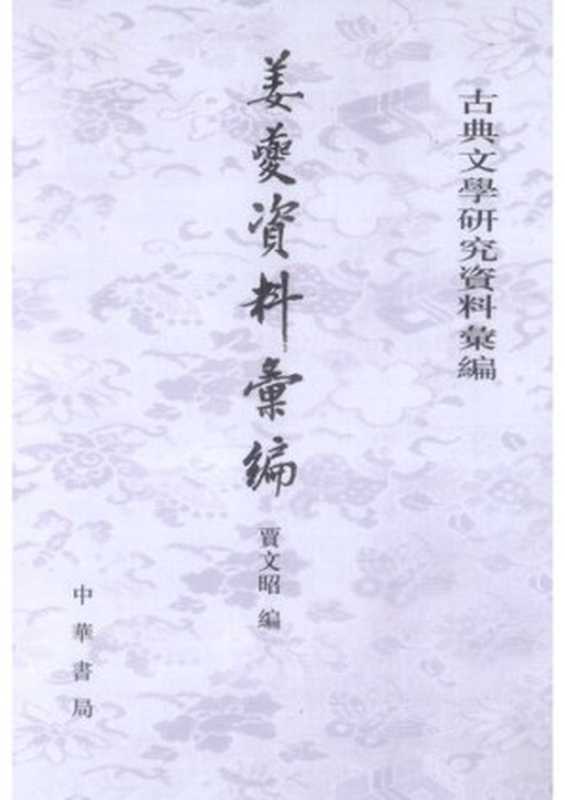 古典文學研究資料彙編
姜夔資料彙編
賈文昭 編
中華書局